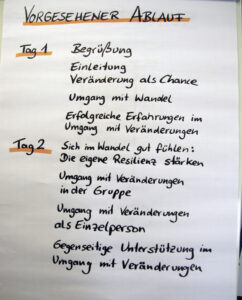 VORGESEHENER ABLAUF
Tag 1 Begrüßung
Einleitung
Veränderung als Chance
Umgang mit Wandel
Erfolgreiche Erfahrungen im
Umgang mit Veränderungen
Tag 2 Sich im Wandel gut fühlen:
Die eigene Resilienz stärken
Umgang mit Veränderungen
in der Gruppe
Umgang mit Veränderungen
als Einzelperson
Gegenseitige Unterstützung im
Umgang mit Veränderungen